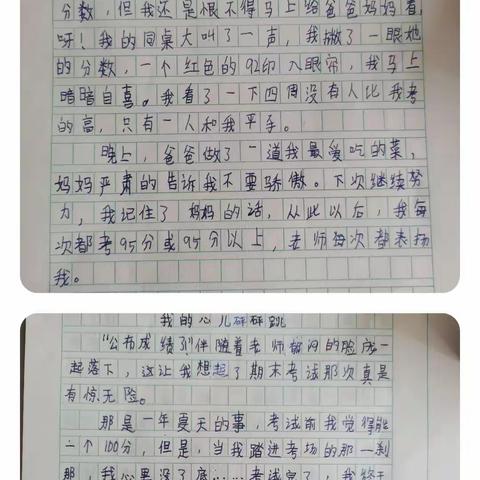 分数，但我还是恨不得马上给爸爸妈妈看，
呀！我的同桌大叫了一声，我撇了一眼她
的分数，一个红色的92印入眼帘，我马上
暗暗自喜。我看了一下四周没有人比我考
的高，只有一人和我平手。
晚上，爸爸做了一道我最爱吃的菜，
妈妈严肃的告诉我不要骄傲。下次继续努
力，我记住了妈妈的话，从此以后，我每
次都考95分或95分以上，老师每次都表扬
我。
我的心儿砰砰跳
“公布成绩了”伴随着老师的脸庞一
起落下，这让我想起了期末考试那次真是
有惊无险。
那是一年夏天的事，考试前我觉得能
一个100分，但是，当我踏进考场的那一刹
那，我心里没了底……考试完了，我终于